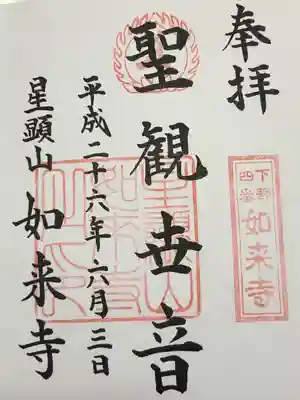 奉拝
下郡
四番
如来寺
聖観世音
平成二十六年六月三日
星顕山 如来寺